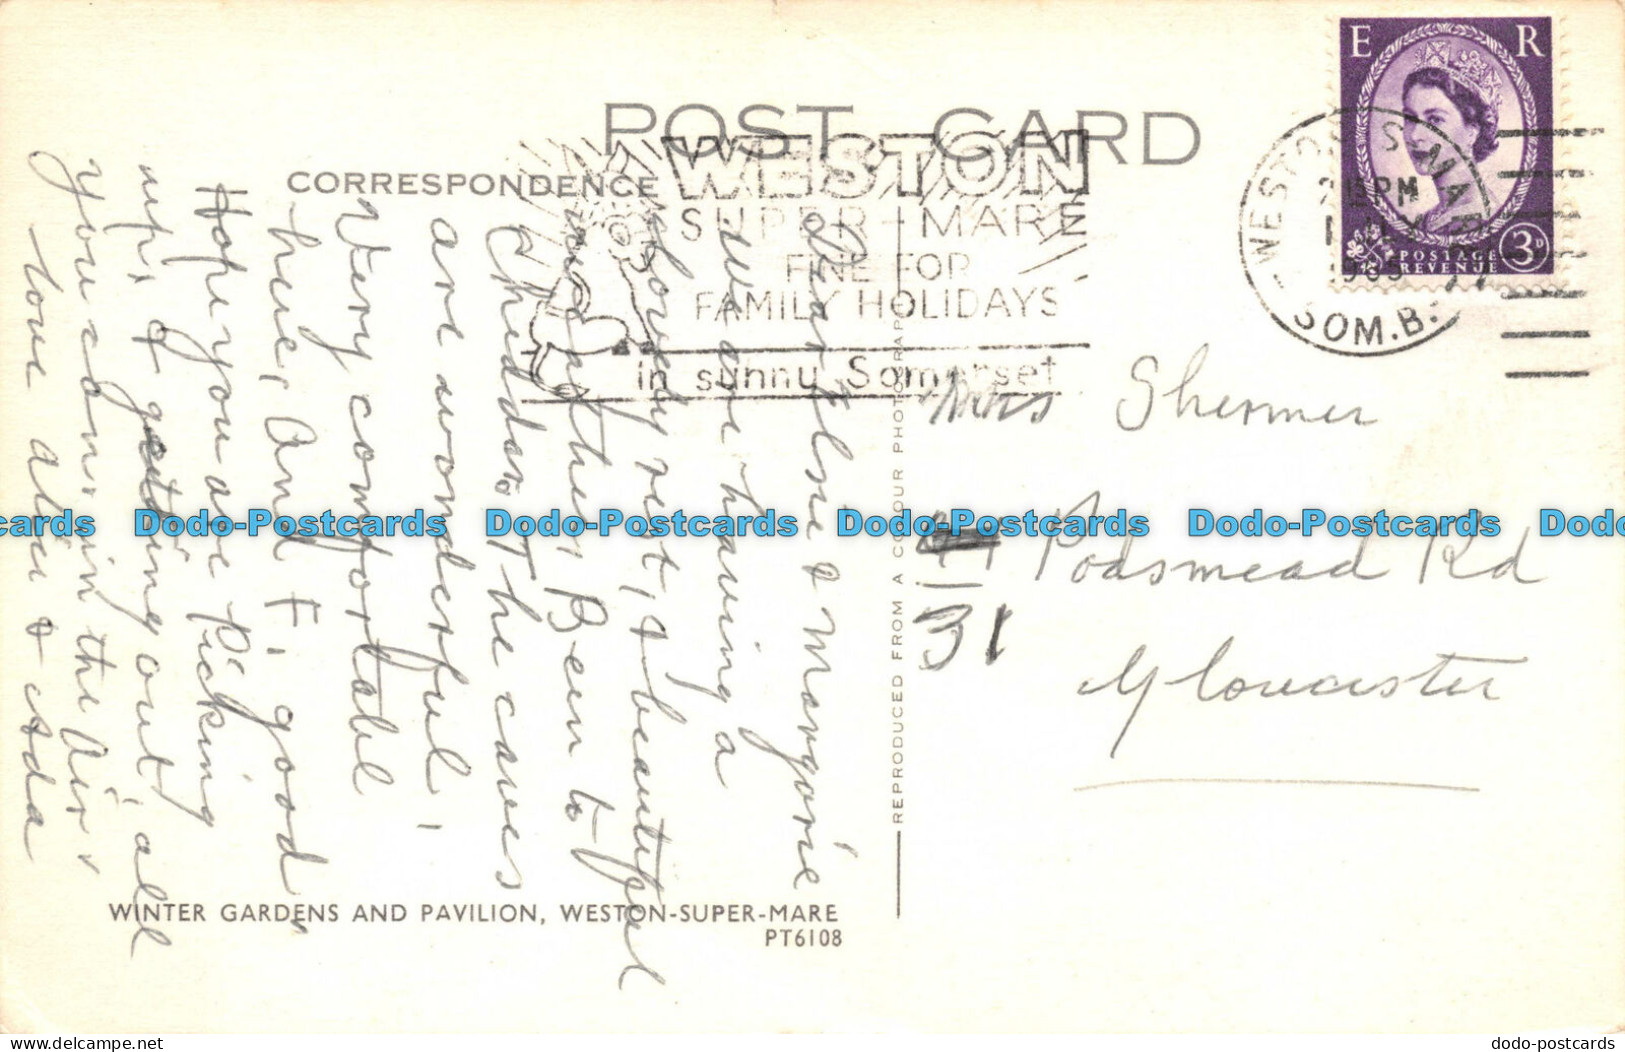 POST CARD
CORRESPONDENCE
WESTON
SUPER-MARE
FINE FOR
FAMILY HOLIDAYS
in sunny Somerset
E R
POSTAGE
REVENUE
3D
WESTON-S-MARE
PM
1965
SOM.B.
Dear Elsie & Margorie
we are having a
lovely rest, & beautiful
weather, Been to
Cheddar. The caves
are wonderful,
Very comfortable
here, and F, good
Hope you are Picking
up, & getting out, all
you can, in the Air
love Alice & Ada
Mrs Shermer
31
Podsmead Rd
Gloucester
REPRODUCED FROM A COLOUR PHOTOGRAPH
WINTER GARDENS AND PAVILION, WESTON-SUPER-MARE
PT6108
cards Dodo-Postcards Dodo-Postcards Dodo-Postcards Dodo-Postcards Dodo
www.delcampe.net
dodo-postcards